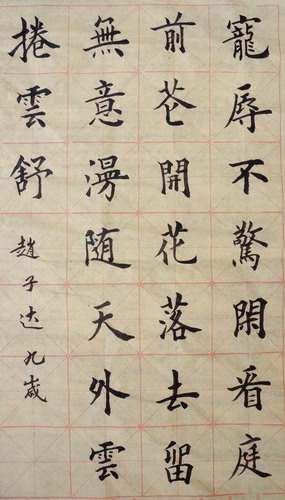 寵辱不驚閑看庭
前花開花落去留
無意漫随天外雲
捲雲舒
趙子达九歲